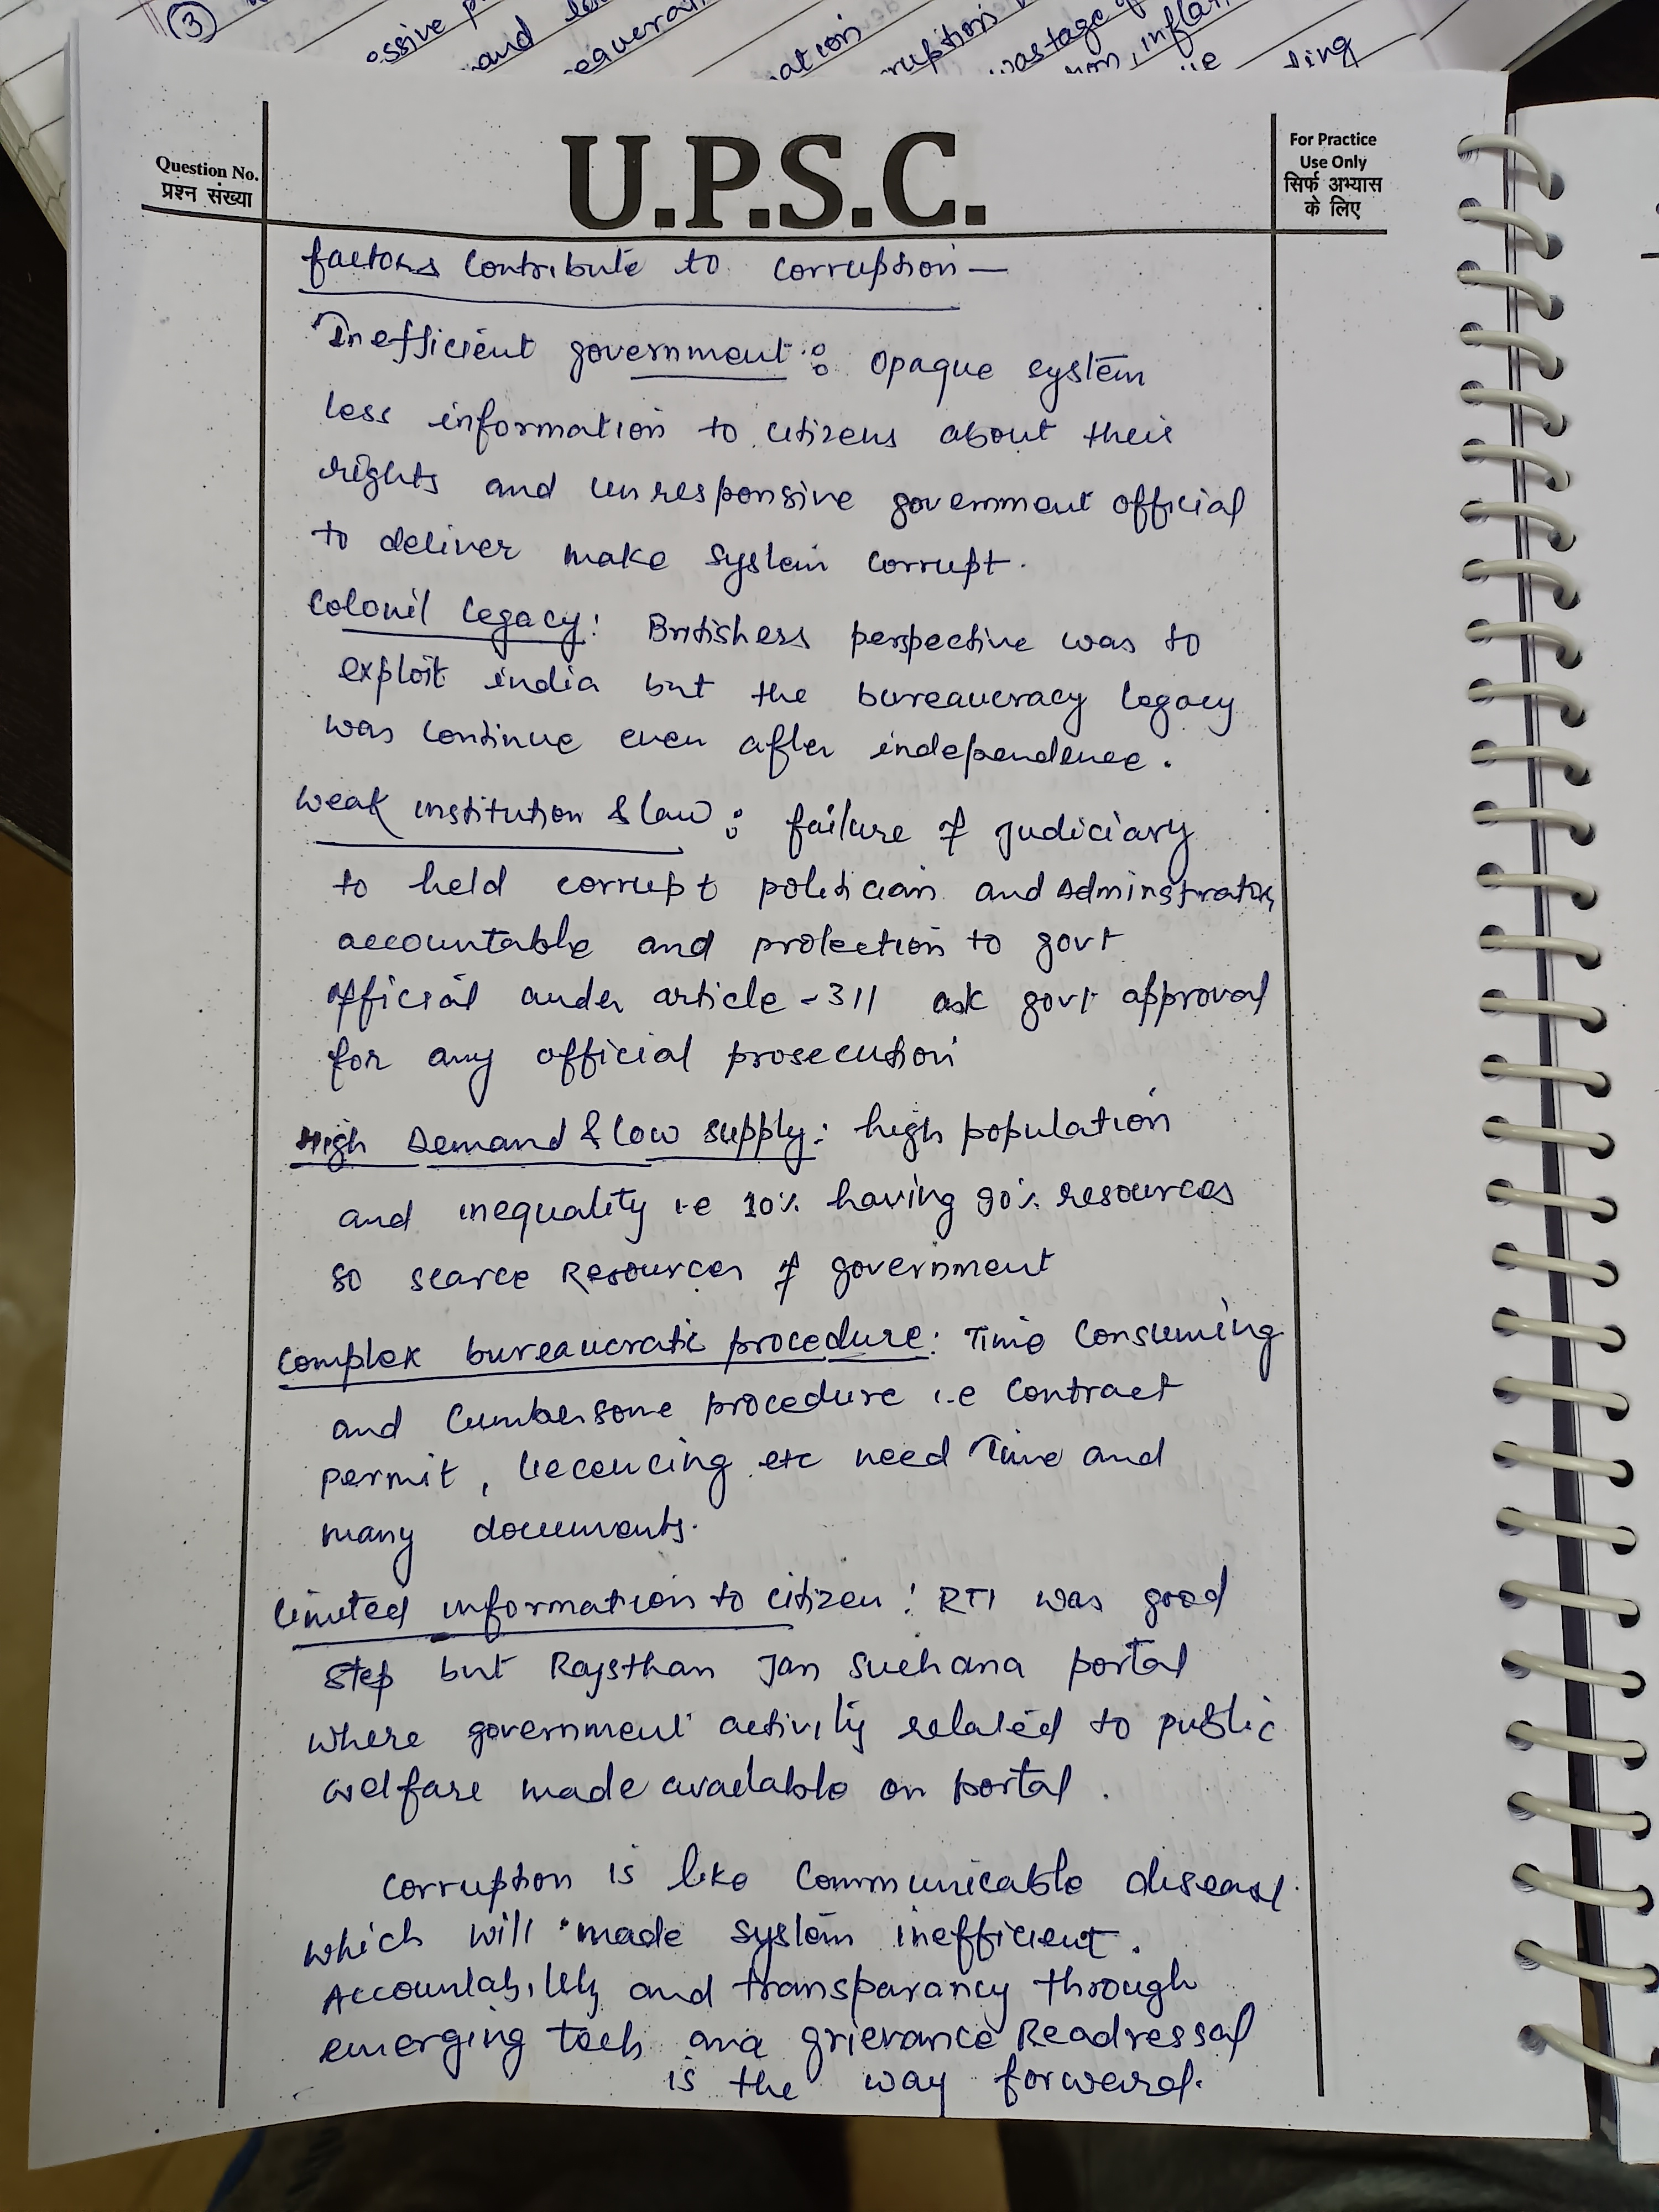 3
essive
and
ation
ruption
wastage
inflat
Question No.
प्रश्न संख्या
U.P.S.C.
For Practice
Use Only
सिर्फ अभ्यास
के लिए
factors contribute to corruption —
Inefficient government : opaque system
less information to citizens about their
rights and unresponsive government official
to deliver make system corrupt.
Colonil legacy : Britishers perspective was to
exploit india but the bureaucracy legacy
was continue even after independence.
Weak institution & law : failure of judiciary
to held corrupt politician and Adminstrator
accountable and protection to govt
official under article -311 ask govt approval
for any official prosecution
High Demand & low supply : high population
and inequality i.e 10% having 90% resources
so scarce Resources of government
Complex bureaucratic procedure : Time Consuming
and Cumbersome procedure i.e Contract
permit, liecencing etc need Time and
many documents.
limited information to citizen : RTI was good
step but Rajsthan Jan Suchana portal
where government activity related to public
welfare made available on portal .
Corruption is like Communicable disease
which will made system inefficient.
Accountability and transparancy through
emerging tech and grievance Readressal
is the way forward.